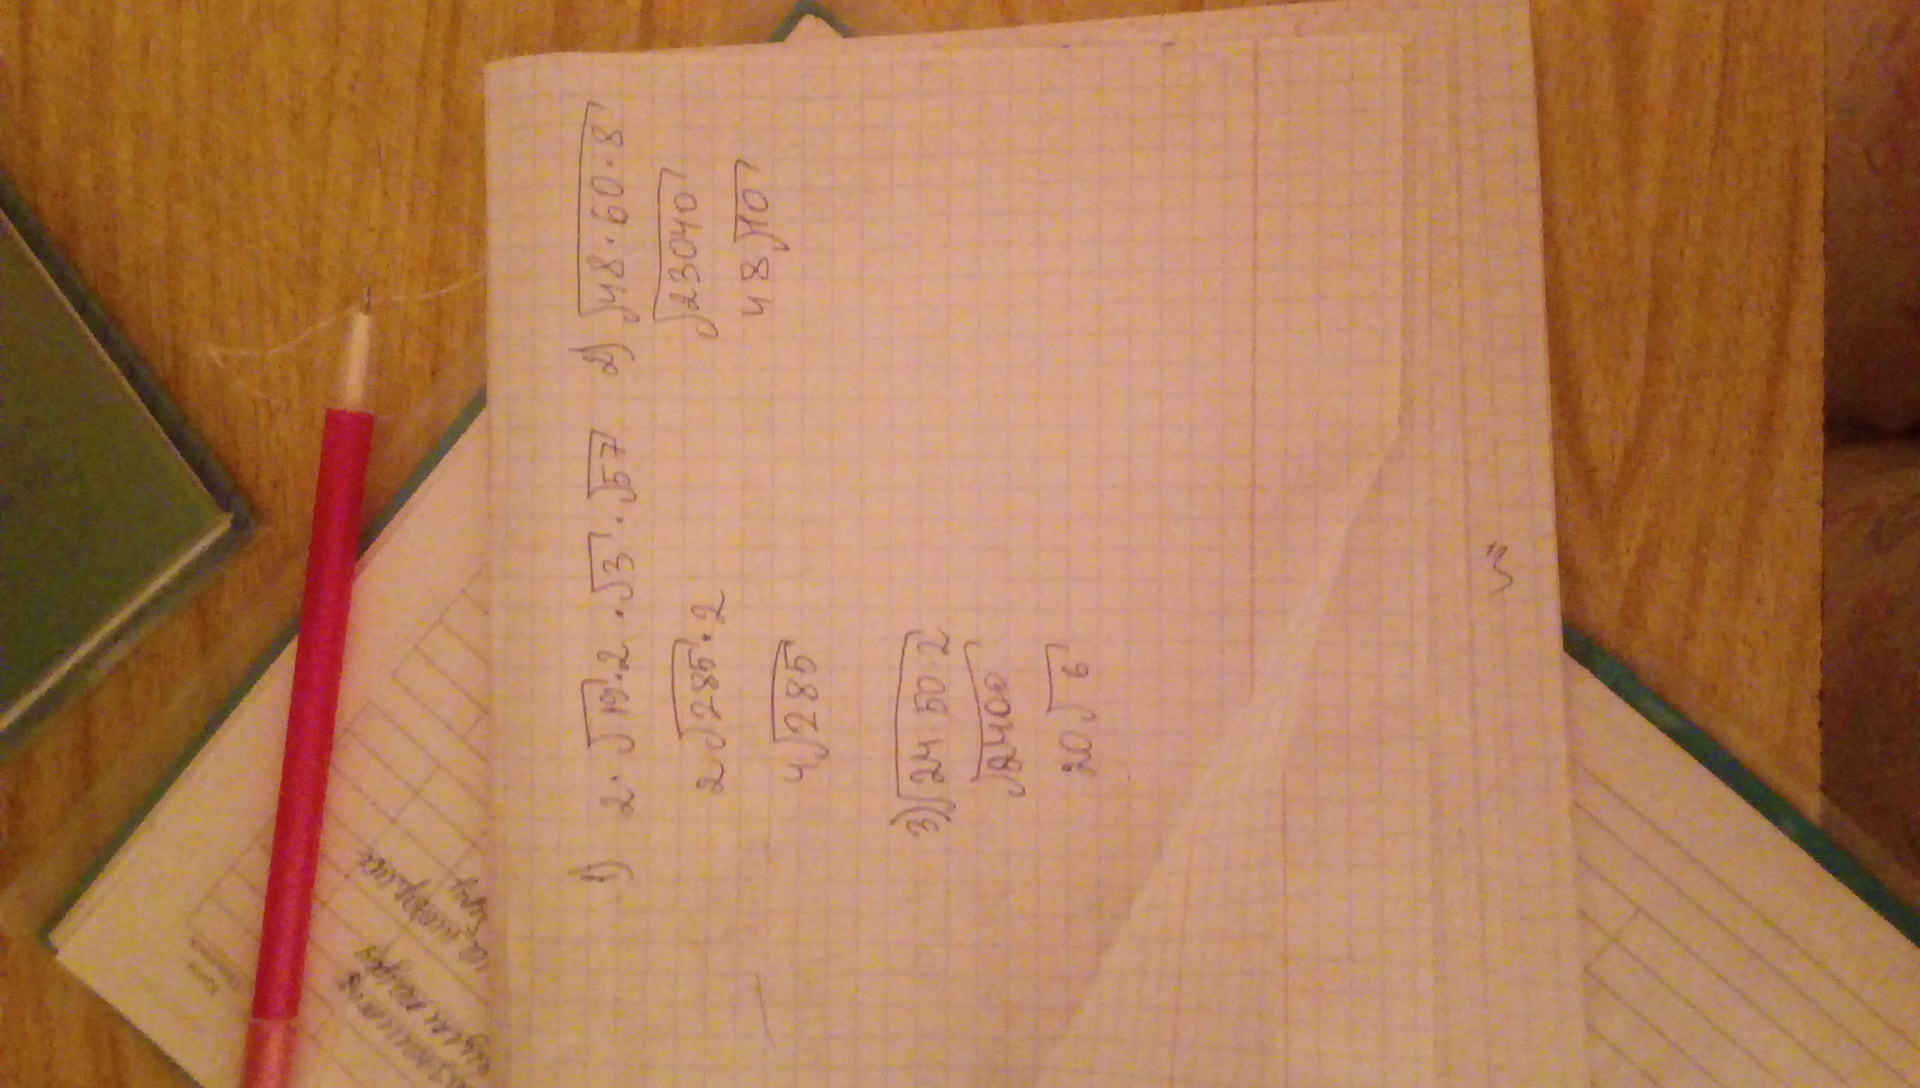 1) 2·√19·2·√3·√57
2√285·2
4√285
2) √48·60·8
√23040
48√10
3) √24·50·2
√2400
20√6